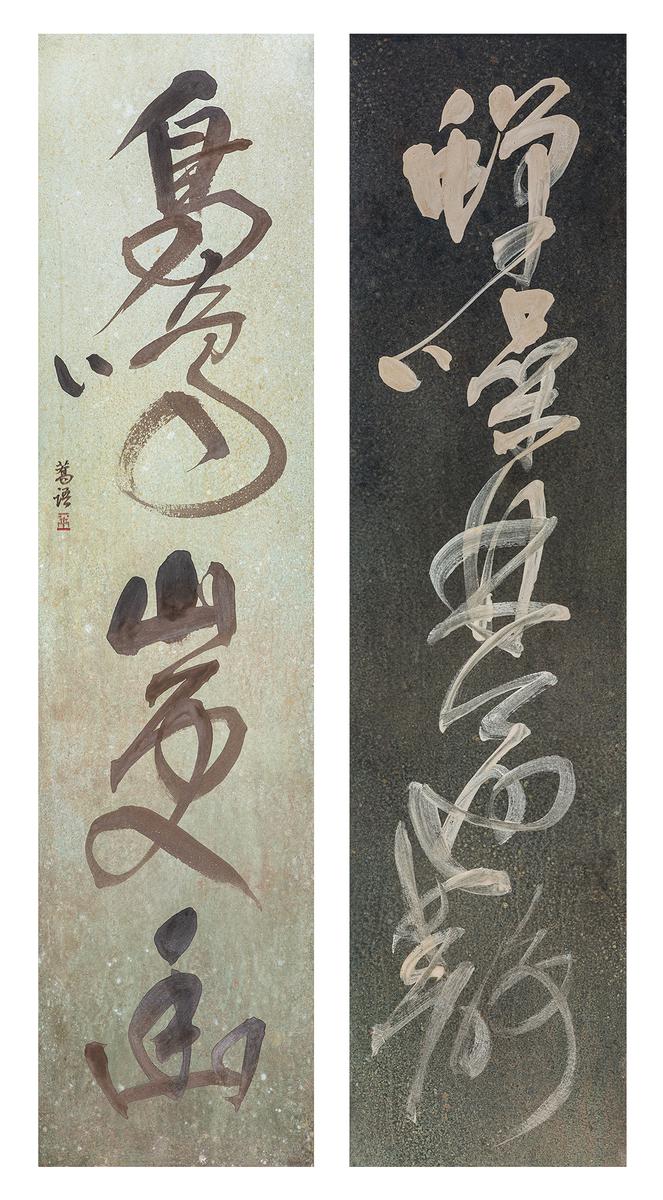 蟬噪林逾靜
鳥鳴山更幽